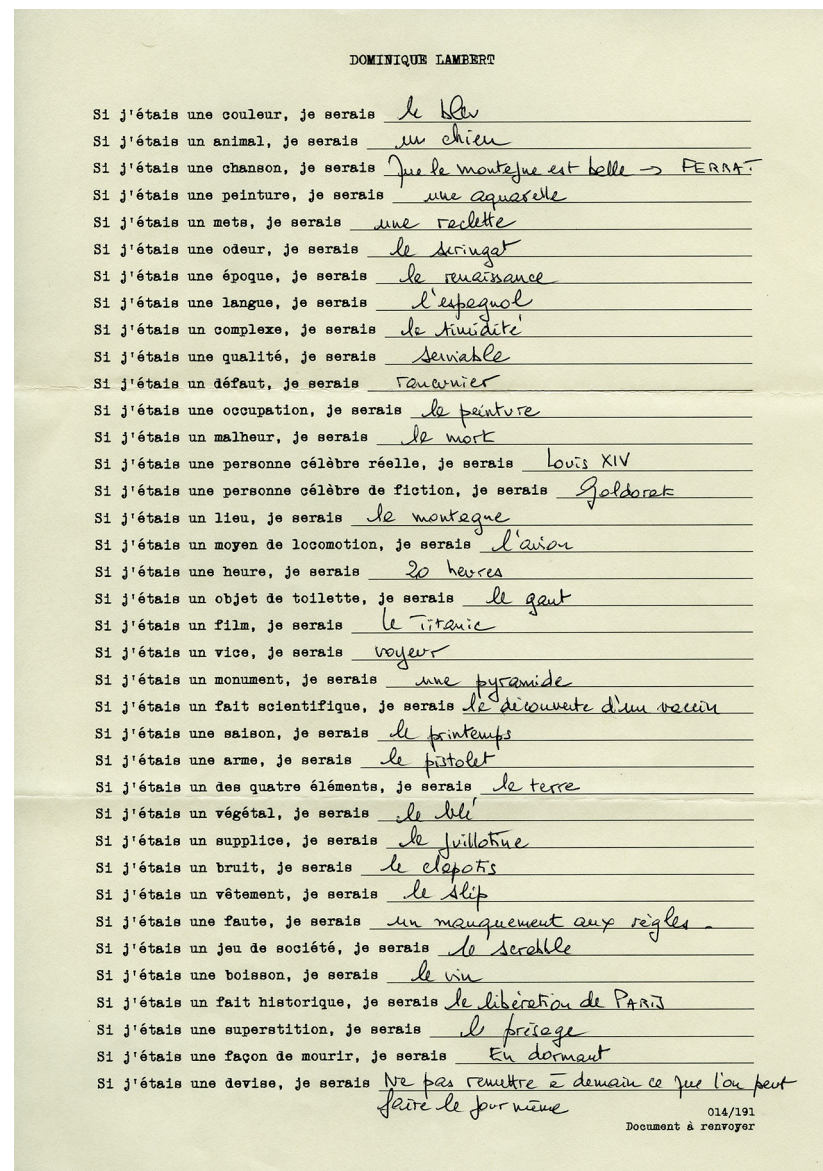 DOMINIQUE LAMBERT
Si j'étais une couleur, je serais le bleu
Si j'étais un animal, je serais un chien
Si j'étais une chanson, je serais Que la montagne est belle → FERRAT
Si j'étais une peinture, je serais une aquarelle
Si j'étais un mets, je serais une raclette
Si j'étais une odeur, je serais le seringat
Si j'étais une époque, je serais la renaissance
Si j'étais une langue, je serais l'espagnol
Si j'étais un complexe, je serais la timidité
Si j'étais une qualité, je serais serviable
Si j'étais un défaut, je serais rancunier
Si j'étais une occupation, je serais la peinture
Si j'étais un malheur, je serais la mort
Si j'étais une personne célèbre réelle, je serais Louis XIV
Si j'étais une personne célèbre de fiction, je serais Goldorak
Si j'étais un lieu, je serais la montagne
Si j'étais un moyen de locomotion, je serais l'avion
Si j'étais une heure, je serais 20 heures
Si j'étais un objet de toilette, je serais le gant
Si j'étais un film, je serais le Titanic
Si j'étais un vice, je serais voyeur
Si j'étais un monument, je serais une pyramide
Si j'étais un fait scientifique, je serais la découverte d'un vaccin
Si j'étais une saison, je serais le printemps
Si j'étais une arme, je serais le pistolet
Si j'étais un des quatre éléments, je serais la terre
Si j'étais un végétal, je serais le blé
Si j'étais un supplice, je serais la guillotine
Si j'étais un bruit, je serais le clapotis
Si j'étais un vêtement, je serais le slip
Si j'étais une faute, je serais un manquement aux règles.
Si j'étais un jeu de société, je serais le scrabble
Si j'étais une boisson, je serais le vin
Si j'étais un fait historique, je serais la libération de PARIS
Si j'étais une superstition, je serais le présage
Si j'étais une façon de mourir, je serais En dormant
Si j'étais une devise, je serais Ne pas remettre à demain ce que l'on peut
faire le jour même
014/191
Document à renvoyer